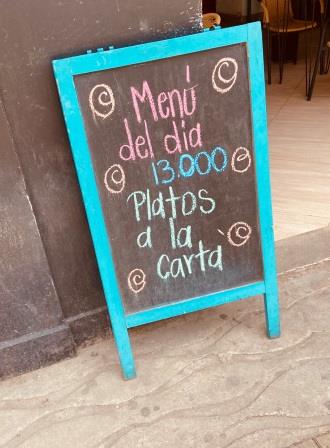 Menú
del dia
13.000
Platos
a la
carta